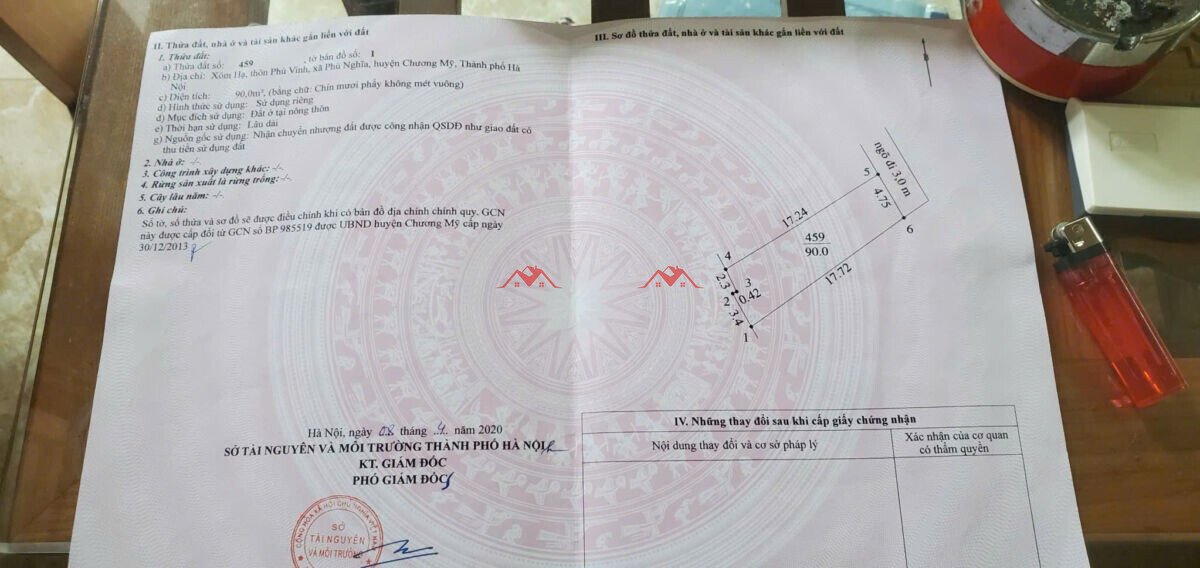 II. Thửa đất, nhà ở và tài sản khác gắn liền với đất
1. Thửa đất:
a) Thửa đất số: 459 , tờ bản đồ số: 1
b) Địa chỉ: Xóm Hạ, thôn Phú Vinh, xã Phú Nghĩa, huyện Chương Mỹ, Thành phố Hà
Nội
c) Diện tích: 90,0m², (bằng chữ: Chín mươi phẩy không mét vuông)
d) Hình thức sử dụng: Sử dụng riêng
đ) Mục đích sử dụng: Đất ở tại nông thôn
e) Thời hạn sử dụng: Lâu dài
g) Nguồn gốc sử dụng: Nhận chuyển nhượng đất được công nhận QSDĐ như giao đất có
thu tiền sử dụng đất
2. Nhà ở: -/-
3. Công trình xây dựng khác: -/-
4. Rừng sản xuất là rừng trồng: -/-
5. Cây lâu năm: -/-
6. Ghi chú:
Số tờ, số thửa và sơ đồ sẽ được điều chỉnh khi có bản đồ địa chính chính quy. GCN
này được cấp đổi từ GCN số BP 985519 được UBND huyện Chương Mỹ cấp ngày
30/12/2013
Hà Nội, ngày 08 tháng 4 năm 2020
SỞ TÀI NGUYÊN VÀ MÔI TRƯỜNG THÀNH PHỐ HÀ NỘI
KT. GIÁM ĐỐC
PHÓ GIÁM ĐỐC
CỘNG HÒA XÃ HỘI CHỦ NGHĨA VIỆT NAM
SỞ
TÀI NGUYÊN
VÀ MÔI TRƯỜNG
III. Sơ đồ thửa đất, nhà ở và tài sản khác gắn liền với đất
ngõ đi 3,0 m
5
4.75
6
17.24
459
90.0
17.72
4
2.3
3
0.42
2
3.4
1
IV. Những thay đổi sau khi cấp giấy chứng nhận
Nội dung thay đổi và cơ sở pháp lý
Xác nhận của cơ quan
có thẩm quyền